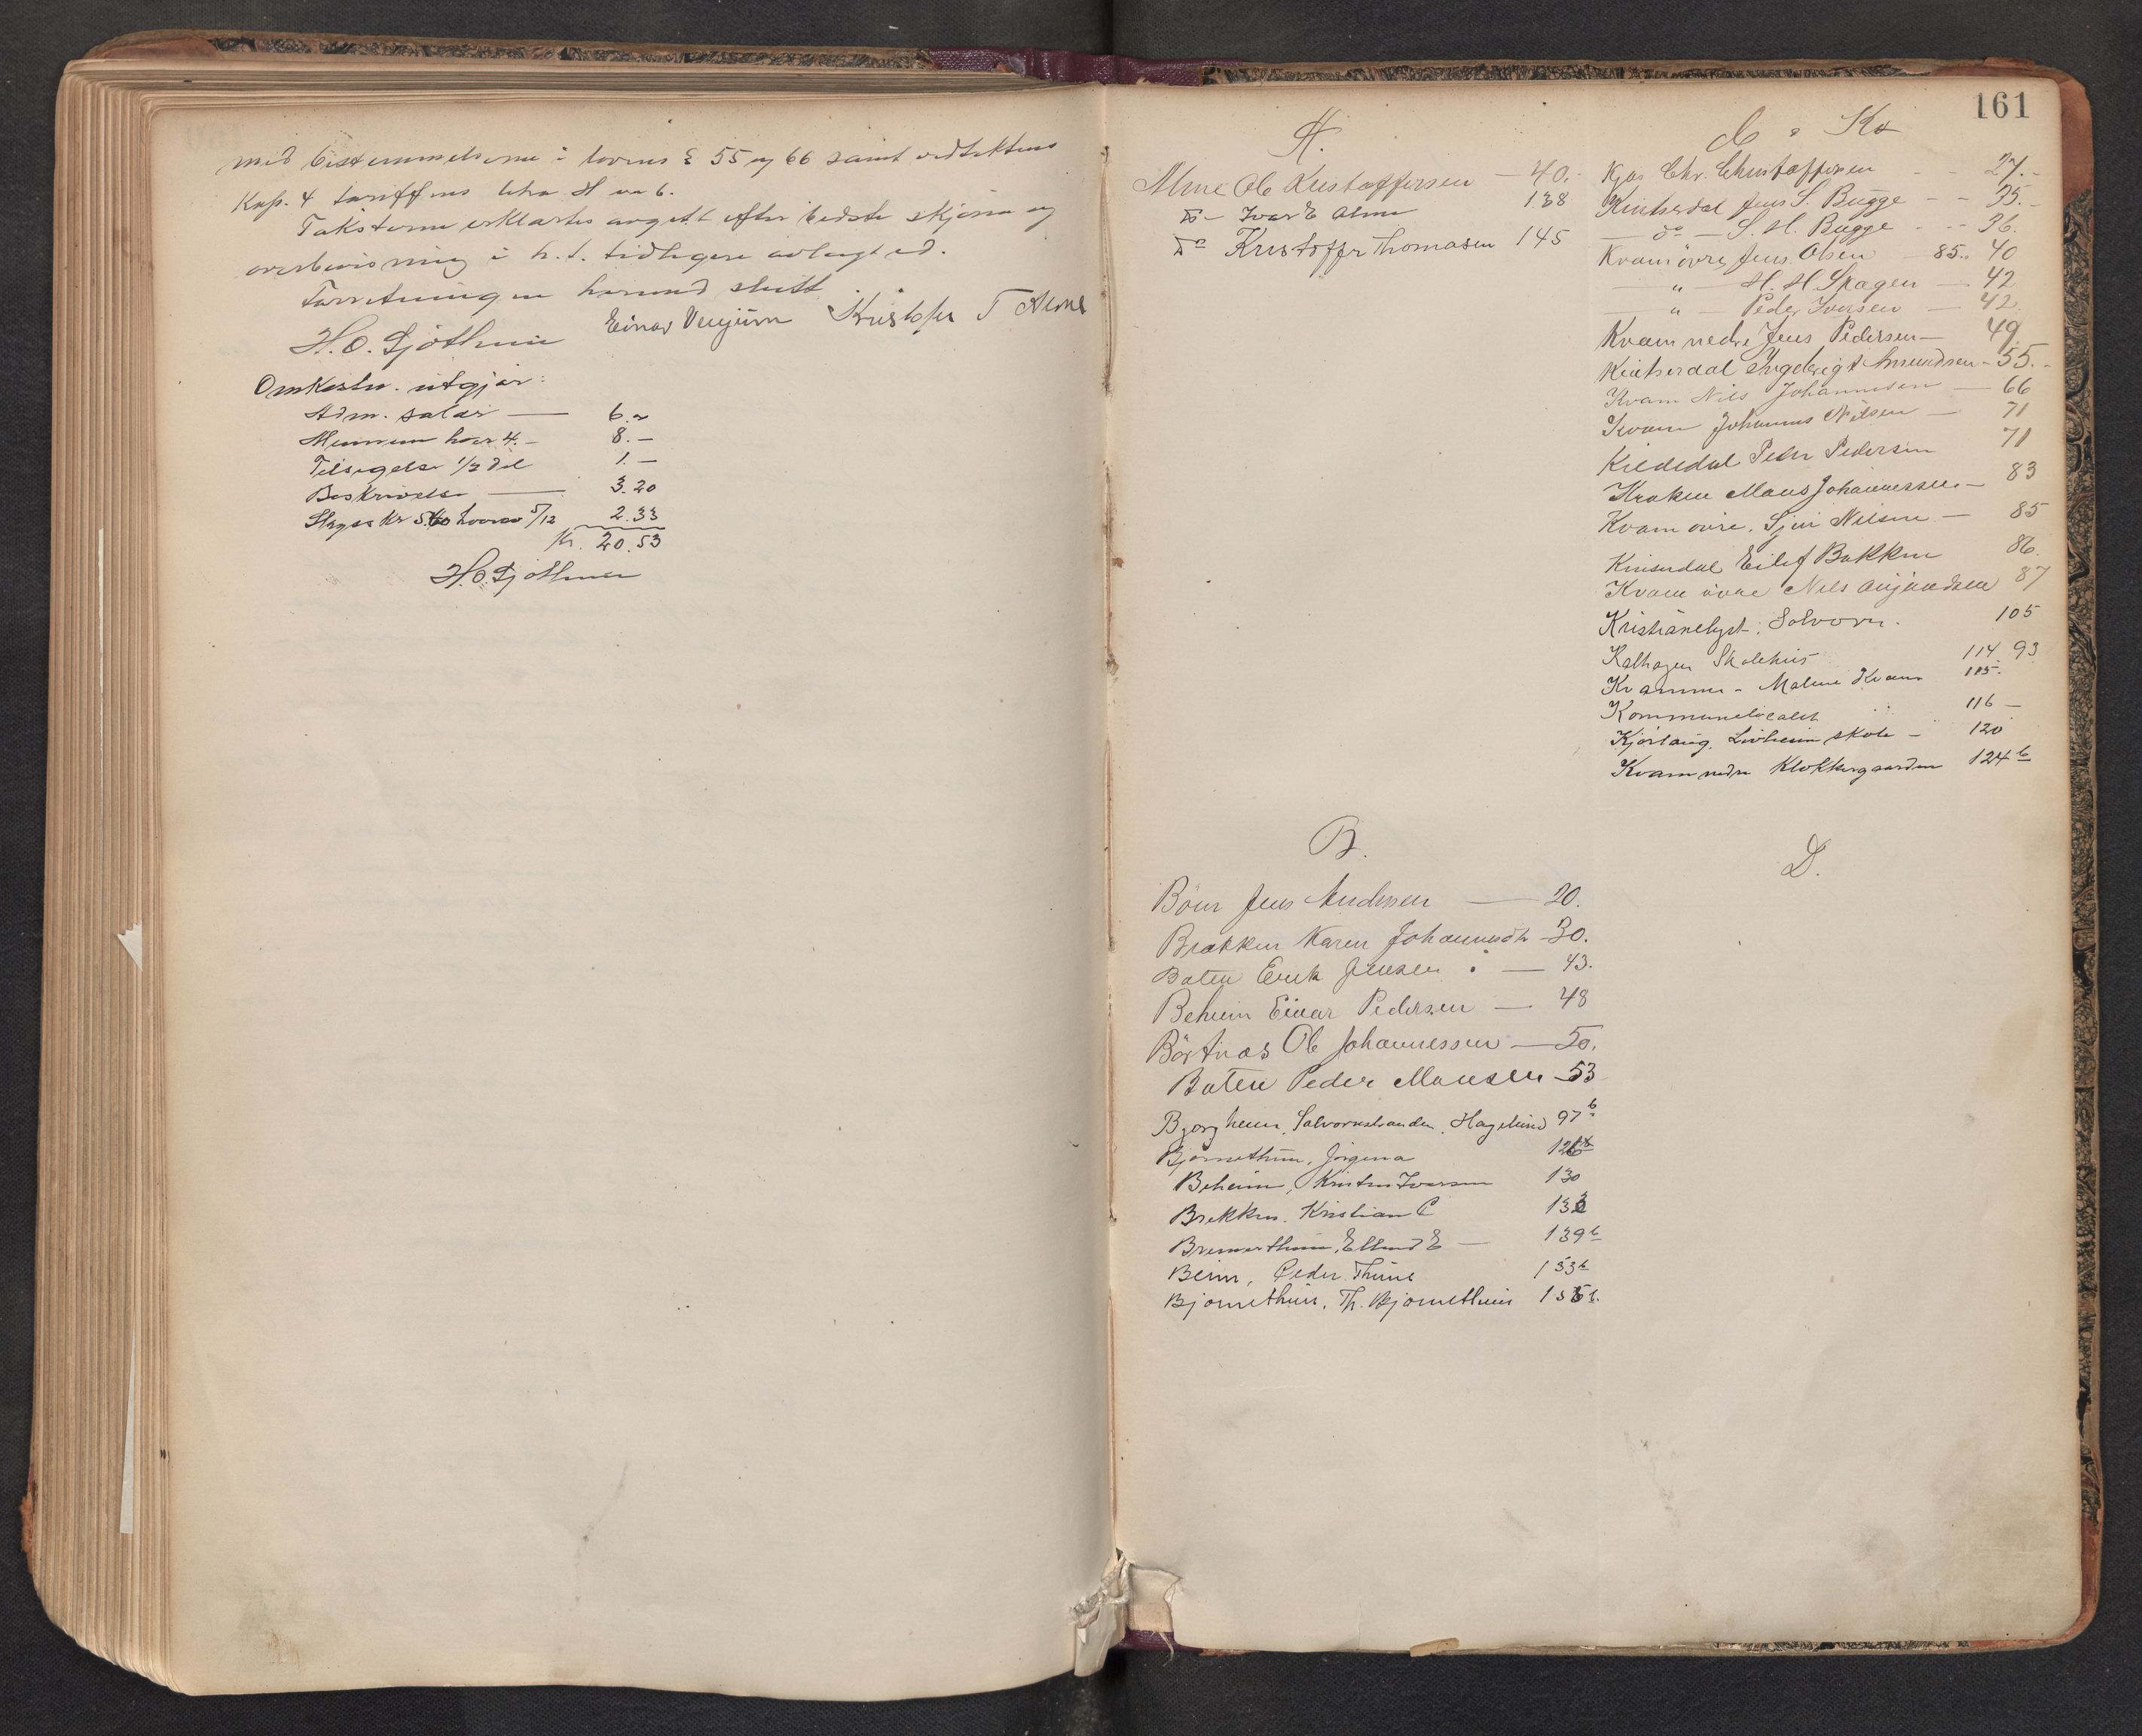 med bestemmelserne i lovens § 55 og 66 samt vedtektens
Kap. 4 tariffens litra H no 6.
Taksterne erklærtes avgitt efter bedste skjønn og
overbevisning i h. t. tidligere avlagt ed.
Forretningen hermed slutt
H.O. Sjøthun Einar Venjum Kristofer T Alme
Omkostn. utgjør:
Adm. salær — 6.-
Mennene hver 4.- 8.-
Tilsigelse 1/2 del 1.-
Beskrivelse — 3.20
Skyss Kr 5.60 hvorav 5/12 2.33
Kr. 20.53
H.O. Sjøthun
161
A.
Alme Ole Kristoffersen — 40.
Do - Ivar E Alme 138
Do Kristoffer Thomasen 145
B.
Böen Jens Andersen — 20.
Brækken Karen Johannesdtr 30.
Baten Erik Jensen — 43.
Beheim Einar Pedersen — 48
Börtnæs Ole Johannessen — 50.
Baten Peder Monsen 53
Bjorgheim, Solvornstranden, Hagelund 97 b
Bjørnethun, Jørgina
Beheim, Kristen Iversen 130
Brekken. Kristian C
Bremerthun, Ellend E — 139 b
Beim, Peder Thune 153 b
Bjørnethun, Th. Bjørnethun
C & K
Kjos Chr. Christoffersen - - 27.-
Kinserdal Jens S. Bugge - - 35.-
— do — S. H. Bugge - - 36.
Kvam övre, Jens Olsen 85. 40
— " — H. H. Skagen — 42
— " — Peder Iversen — 42
Kvam nedre Jens Pedersen — 49
Kinserdal Ingebrigt Amundsen - 55.-
Kvam Nils Johannesen — 66
Kvam Johannes Nilsen — 71
Kildedal Peder Pedersen 71
Kroken Mons Johannessen — 83
Kvam övre. Sjur Nilsen — 85
Kinserdal Eilef Bakken 86.
Kvam övre Nils 87
Kristianelyst, Solvorn. 105
Kalhagen Skolehus 114 93
Kvamme - Malene Kvam 115.
Kommunelocalet 116 —
Kjørlaug. Livheim skole - 120
Kvam nedre Klokkergaarden 124 b
D.